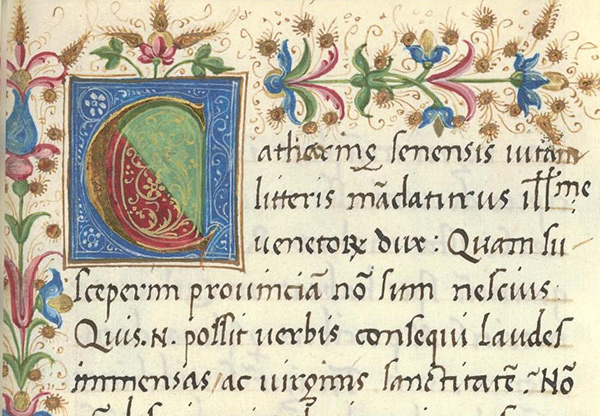 Catharinę senensis uitam
litteris mādaturus illme
uenetoꝝ dux: Quam su
sceperim prouinciā nō sum nescius
Quis.N. possit uerbis consequi laudes
immensas, ac uirginis sanctitatē. Nō